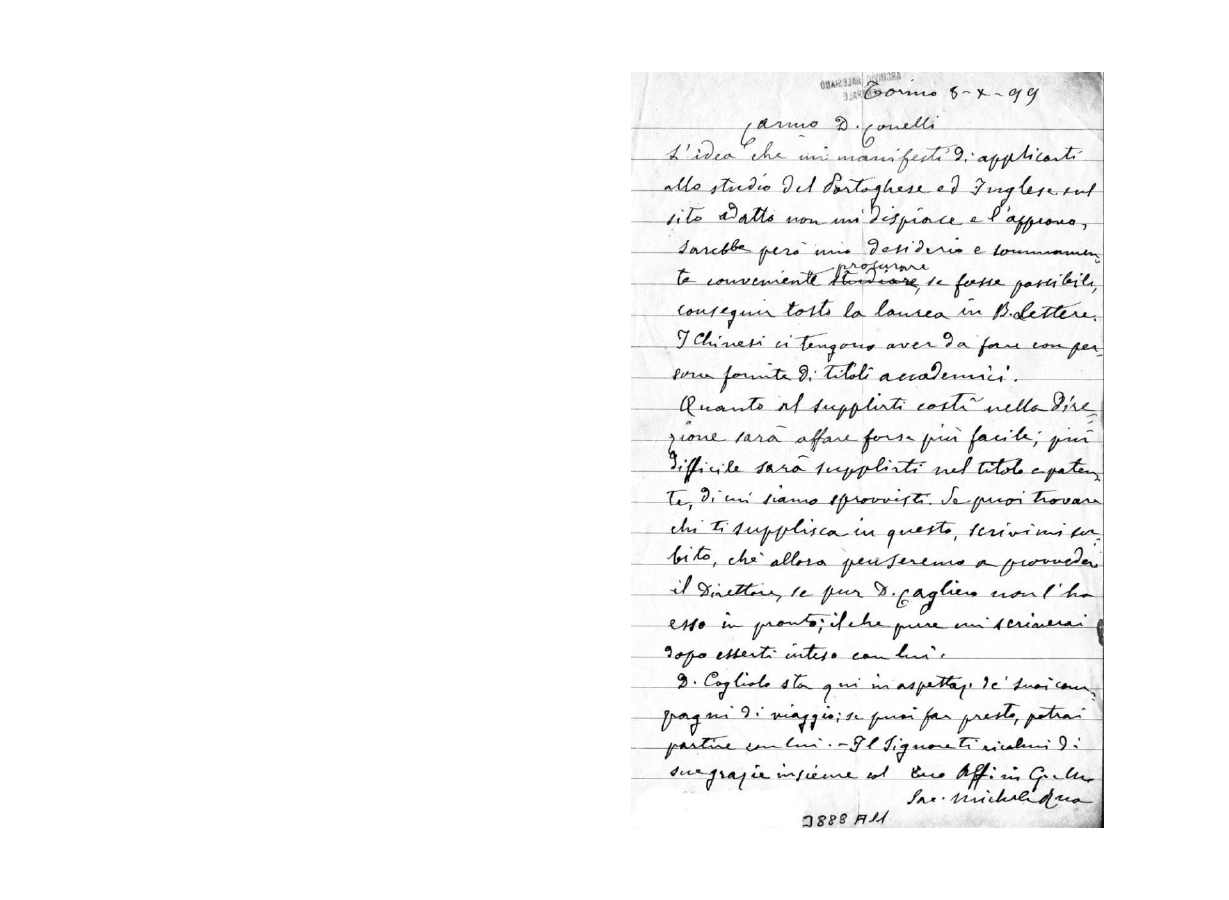 ARCHIVIO SALESIANO
CENTRALE
Torino 8-X-99
Carmo D. Conelli
L'idea che mi manifesti di applicarti
allo studio del Portoghese ed Inglese sul
sito adatto non mi dispiace e l'approvo,
sarebbe però mio desiderio e sommamen-
procurare
te conveniente studiare, se fosse possibile,
conseguir tosto la laurea in B. Lettere.
I Chinesi ci tengono aver da fare con per-
sone fornite di titoli accademici.
Quanto al supplirti costì nella Dire=
zione sarà affare forse più facile; più
difficile sarà supplirti nel titolo e paten-
te, di cui siamo sprovvisti. Se puoi trovare
chi ti supplisca in questo, scrivimi su-
bito, chè allora penseremo a provvedere
il Direttore, se pur D. Cagliero non l'ha
esso in pronto; il che pure mi scriverai
dopo esserti inteso con lui.
D. Cogliolo sta qui in aspettaz. de' suoi com-
pagni di viaggio; se puoi far presto, potrai
partire con lui. - Il Signore ti ricolmi di
sue grazie insieme col tuo Aff. in G. e M.
Sac. Michele Rua